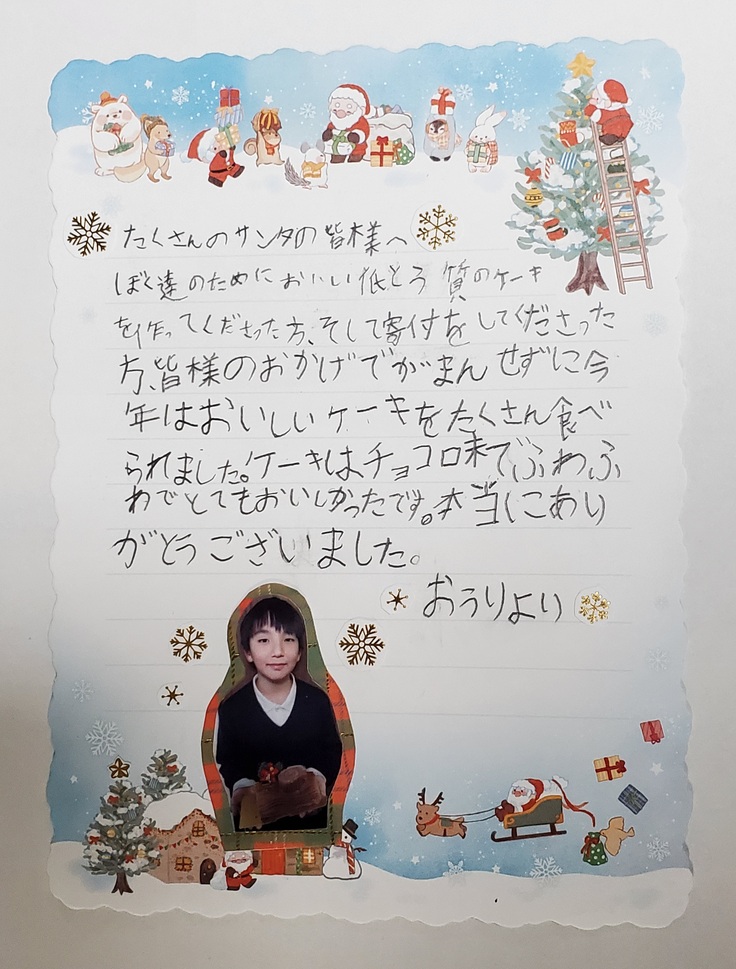 たくさんのサンタの皆様へ
ぼく達のためにおいしい低とう質のケーキ
を作ってくださった方、そして寄付をしてくださった
方、皆様のおかげでがまんせずに今
年はおいしいケーキをたくさん食べ
られました。ケーキはチョコロ味でふわふ
わでとてもおいしかったです。本当にあり
がとうございました。
おうりより